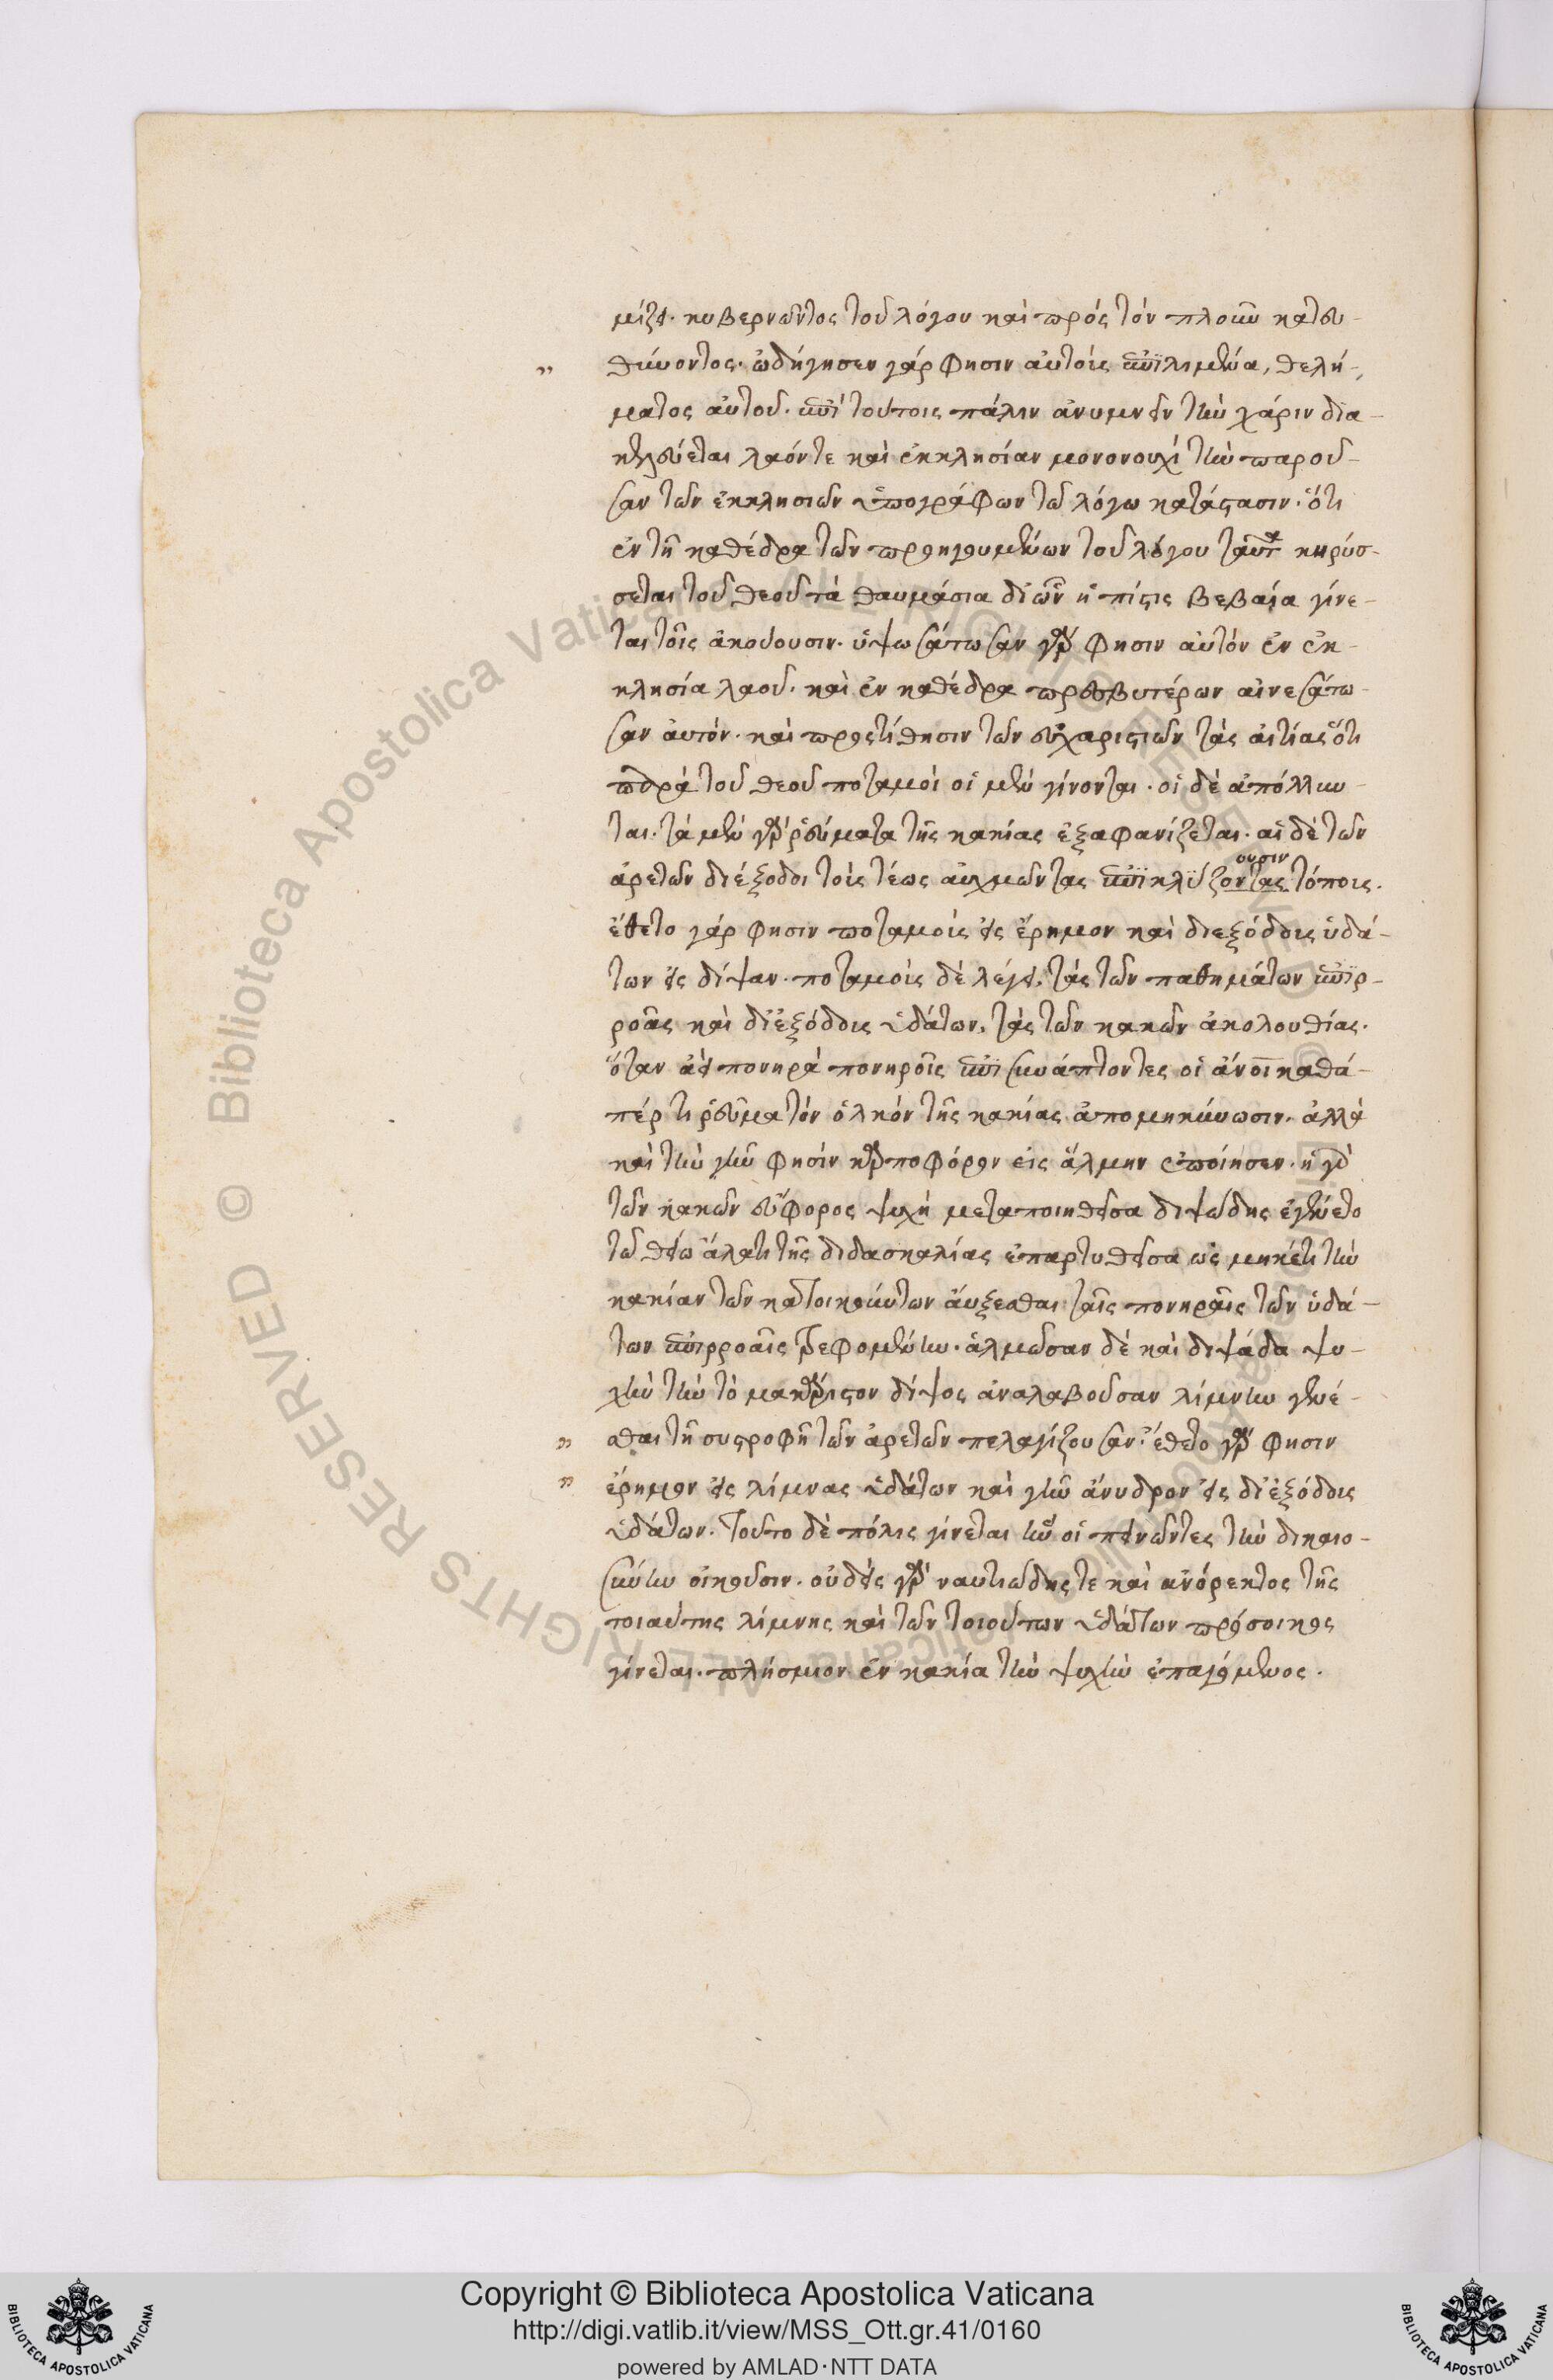 μίζει· κυβερνῶντος τοῦ λόγου καὶ πρὸς τὸν πλοῦν κατευ-
„ θύνοντος. ὡδήγησεν γάρ φησιν αὐτοὺς ἐπὶ λιμένα, θελή-
ματος αὐτοῦ. ἐπὶ τούτοις πάλιν ἀνυμνεῖν τὴν χάριν δια-
κελεύεται λαόν τε καὶ ἐκκλησίαν μονονουχὶ τὴν παροῦ-
σαν τῶν ἐκκλησιῶν ὑπογράφων τῷ λόγῳ κατάστασιν. ὅτι
ἐν τῇ καθέδρα τῶν προηγουμένων τοῦ λόγου ταῦτα κηρύσ-
σεται τοῦ θεοῦ τὰ θαυμάσια δι ὧν ἡ πίστις βεβαία γίνε-
ται τοῖς ἀκούουσιν. ὑψωσάτωσαν γάρ φησιν αὐτὸν ἐν ἐκ-
κλησία λαοῦ. καὶ ἐν καθέδρα πρεσβυτέρων αἰνεσάτω-
σαν αὐτόν. καὶ προστίθησιν τῶν εὐχαριστιῶν τὰς αἰτίας ὅτι
παρὰ τοῦ θεοῦ ποταμοὶ οἱ μὲν γίνονται. οἱ δὲ ἀπόλλυν-
ται. τὰ μὲν γὰρ ῥεύματα τῆς κακίας ἐξαφανίζεται. αἱ δὲ τῶν
ἀρετῶν διέξοδοι τοὺς τέως αὐχμῶντας ἐπικλύζοντας τόπους.
ουσιν
ἔθετο γάρ φησιν ποταμοὺς εἰς ἔρημον καὶ διεξόδους ὑδά-
των εἰς δίψαν. ποταμοὺς δὲ λέγει, τὰς τῶν παθημάτων ἐπιρ-
ροὰς καὶ διεξόδους ὑδάτων, τὰς τῶν κακῶν ἀκολουθίας.
ὅταν ἀεὶ πονηρὰ πονηροῖς ἐπισυνάπτοντες οἱ ἄνοι καθά-
πέρ τι ῥεῦμα τὸν ὁλκὸν τῆς κακίας ἀπομηκύνωσιν. ἀλλὰ
καὶ τὴν γῆν φησὶν καρποφόρον εἰς ἅλμην ἐποίησεν. ἡ γὰρ
τῶν κακῶν εὔφορος ψυχὴ μεταποιηθεῖσα διψώδης ἐγένετο
τῷ θείῳ ἅλατι τῆς διδασκαλίας ἐπαρτυθεῖσα ὡς μηκέτι τὴν
κακίαν τῶν κατοικούντων αὔξεσθαι ταῖς πονηραῖς τῶν ὑδά-
των ἐπιρροαῖς τρεφομένην. ἁλμῶσαν δὲ καὶ διψάδα ψυ-
χὴν τὴν τὸ μακάριστον δίψος ἀναλαβοῦσαν λίμνην γενέ-
„ σθαι τῇ συστροφῇ τῶν ἀρετῶν πελαγίζουσαν. ἔθετο γάρ φησιν
„ ἔρημον εἰς λίμνας ὑδάτων καὶ γῆν ἄνυδρον εἰς διεξόδους
ὑδάτων. τοῦτο δὲ πόλις γίνεται ἣν οἱ πεινῶντες τὴν δικαιο-
σύνην οἰκοῦσιν. οὐδεὶς γὰρ ναυτιώδης τε καὶ ἀνόρεκτος τῆς
τοιαύτης λίμνης καὶ τῶν τοιούτων ὑδάτων πρόσοικος
γίνεται. πλήσμιον ἐν κακία τὴν ψυχὴν ἐπαγόμενος.
© Biblioteca Apostolica Vaticana ALL RIGHTS RESERVED
Copyright © Biblioteca Apostolica Vaticana
http://digi.vatlib.it/view/MSS_Ott.gr.41/0160
powered by AMLAD·NTT DATA
BIBLIOTECA APOSTOLICA VATICANA
BIBLIOTECA APOSTOLICA VATICANA